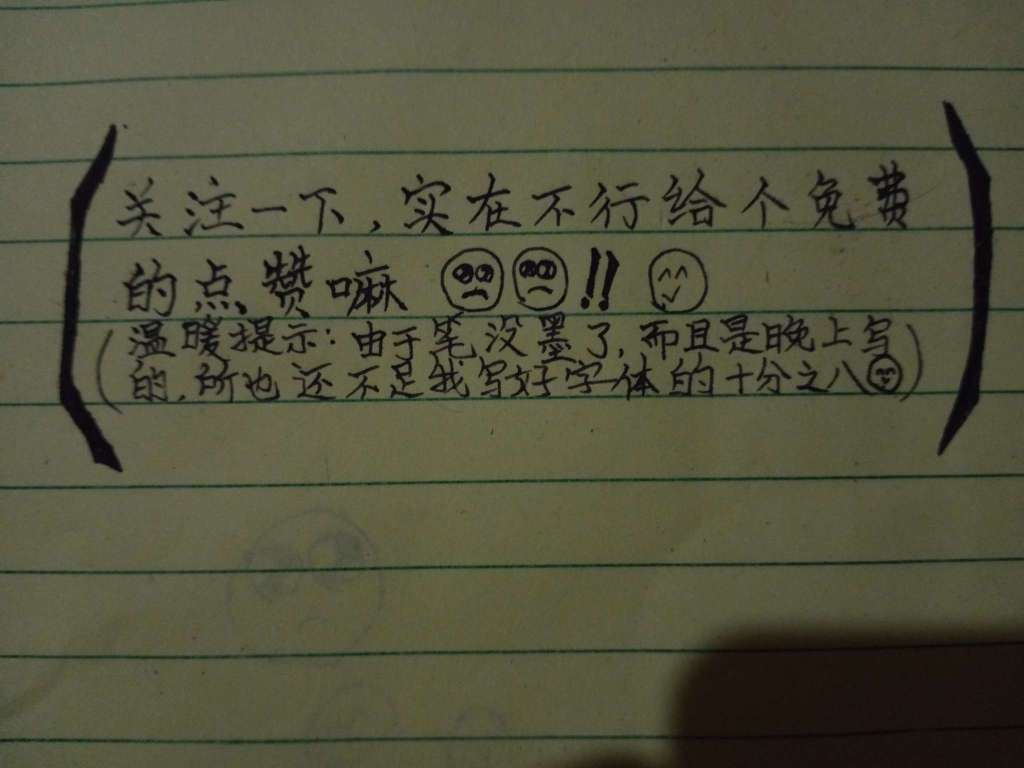 (关注一下,实在不行给个免费
的点赞嘛 🥺🥺!! 😊)
(温暖提示:由于笔没墨了,而且是晚上写
的,所也还不足我写好字体的十分之八😊)